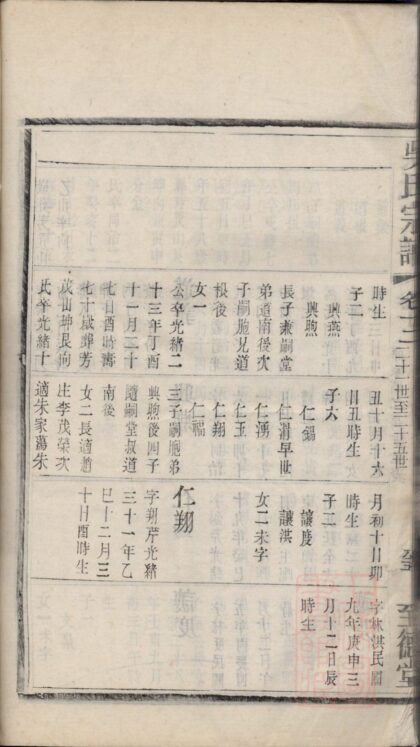 吳氏宗譜
卷二
二十一世至二十五世
至德堂
時生
子二
興燕
興煦
長子兼嗣堂
弟道南後次
子嗣胞兄道
根後
女一
公卒光緒二
十三年丁酉
十一月二十
七日酉時壽
七十歲葬芳
茂山坤艮向
氏卒光緒十
丑十月十六
日丑時生
子六
仁錫
仁渭早世
仁湧
仁玉
仁翔
仁福
三子嗣胞弟
興煦後四子
隨嗣堂叔道
南後
女二長適趙
庄李茂榮次
適朱家蕩朱
月初十日卯
時生
子二
讓度
讓洪
女二未字
仁翔
字翔芹光緒
三十一年乙
巳十二月三
十日酉時生
字秋洪民國
九年庚申三
月十二日辰
時生